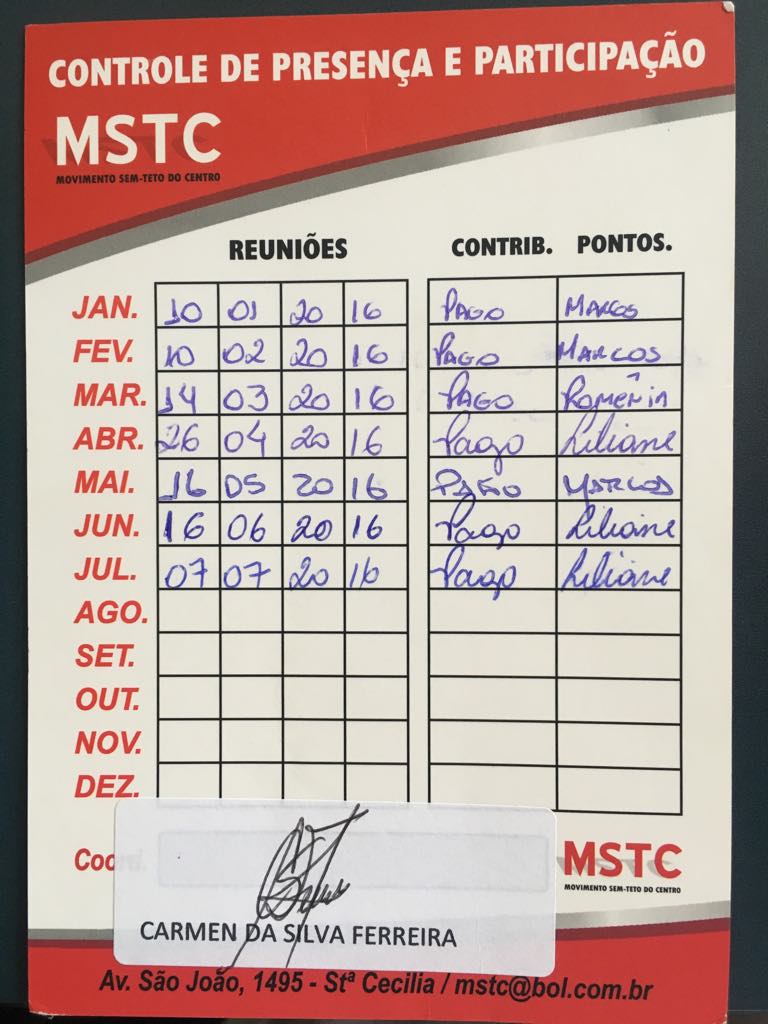 CONTROLE DE PRESENÇA E PARTICIPAÇÃO
MSTC
MOVIMENTO SEM-TETO DO CENTRO
REUNIÕES CONTRIB. PONTOS.
JAN. 10 01 20 16 PAGO MARCOS
FEV. 10 02 20 16 PAGO MARCOS
MAR. 14 03 20 16 PAGO ROMÊNIA
ABR. 26 04 20 16 Pago Liliane
MAI. 16 05 20 16 PAGO MARCOS
JUN. 16 06 20 16 Pago Liliane
JUL. 07 07 20 16 Pago Liliane
AGO.
SET.
OUT.
NOV.
DEZ.
MSTC
MOVIMENTO SEM-TETO DO CENTRO
CARMEN DA SILVA FERREIRA
Av. São João, 1495 - Stª Cecilia / mstc@bol.com.br